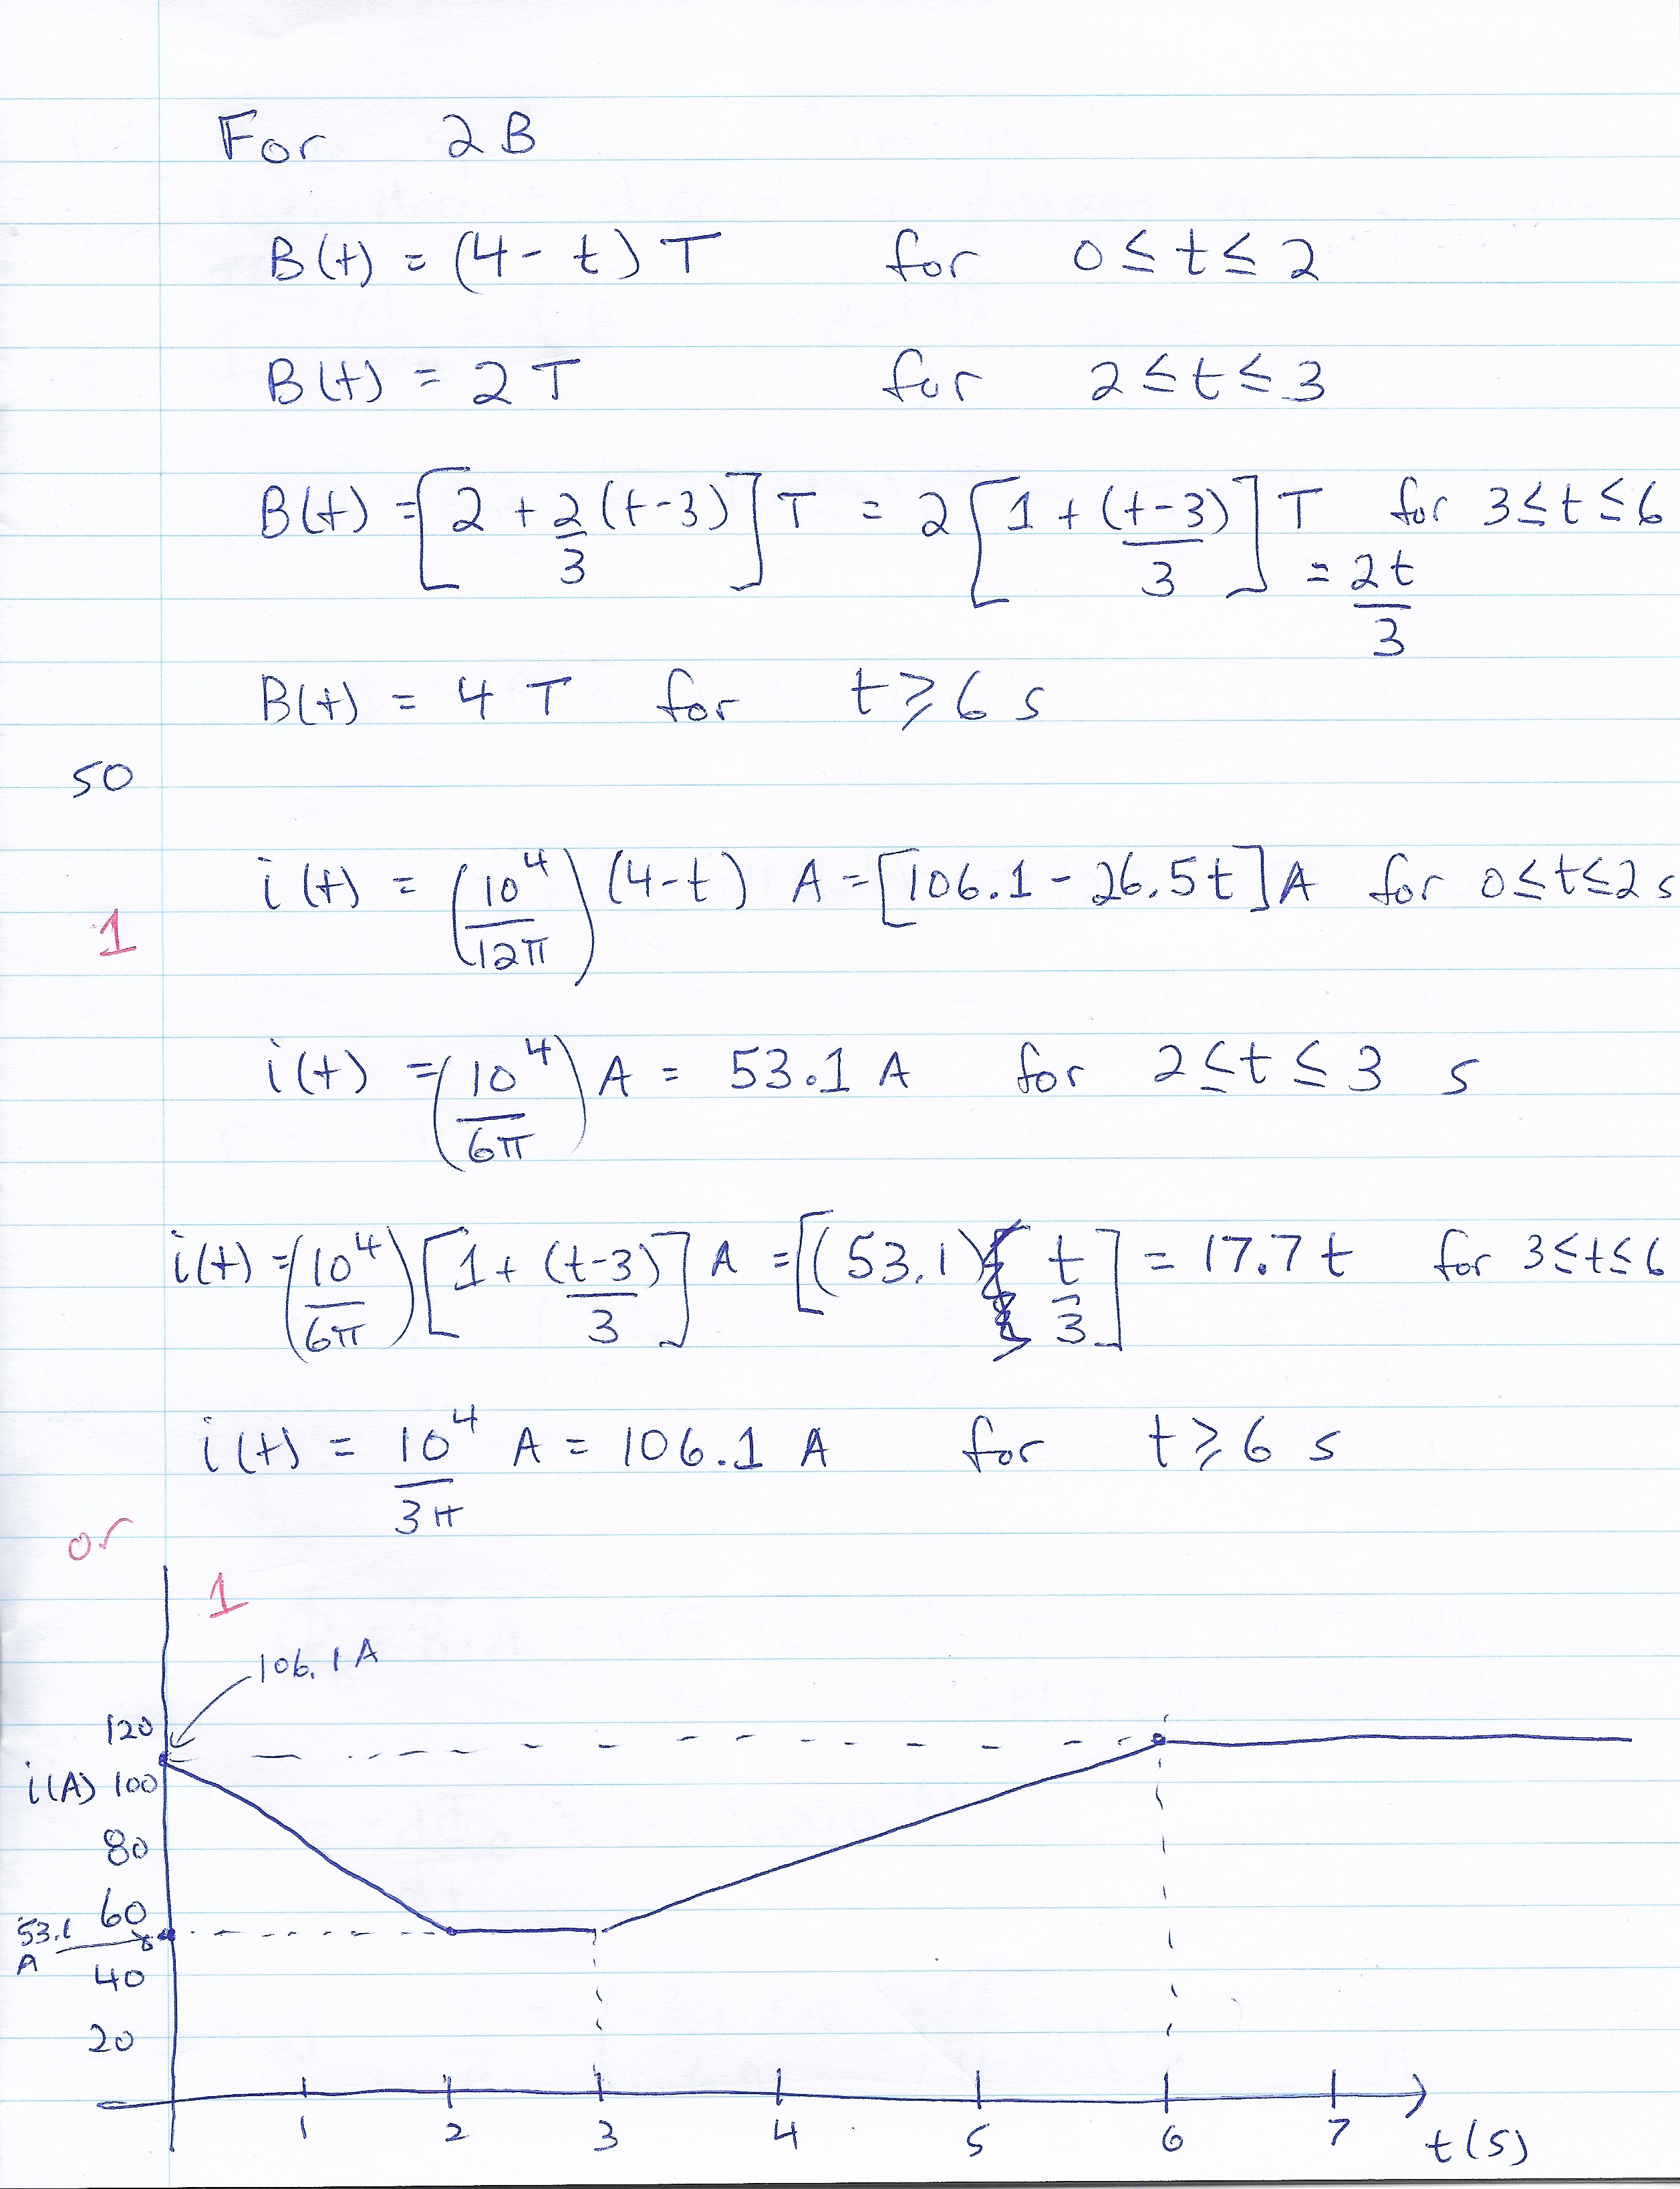 For 2B
B(t) = (4 - t) T for 0 ≤ t ≤ 2
B(t) = 2 T for 2 ≤ t ≤ 3
B(t) = [2 + 2/3 (t-3)] T = 2 [1 + (t-3)/3] T for 3 ≤ t ≤ 6
= 2t/3
B(t) = 4 T for t ≥ 6 s
so
i(t) = (10^4/12π) (4-t) A = [106.1 - 26.5t] A for 0 ≤ t ≤ 2 s
1
i(t) = (10^4/6π) A = 53.1 A for 2 ≤ t ≤ 3 s
i(t) = (10^4/6π) [1 + (t-3)/3] A = [(53.1) t/3] = 17.7 t for 3 ≤ t ≤ 6
i(t) = 10^4/3π A = 106.1 A for t ≥ 6 s
or
1
106.1 A
120
i(A) 100
80
60
53.1 A
40
20
1 2 3 4 5 6 7 t(s)